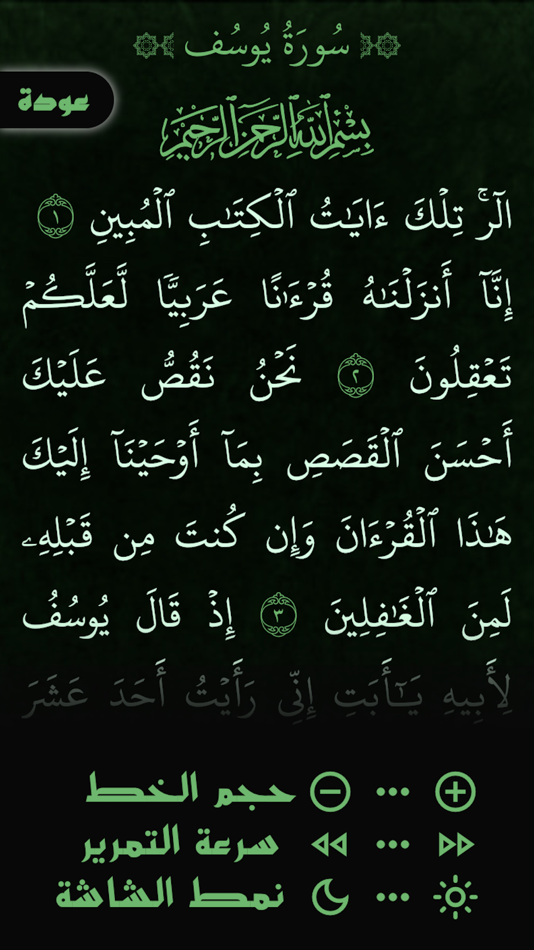 سُورَةُ يُوسُف
عودة
بِسْمِ ٱللَّهِ ٱلرَّحْمَٰنِ ٱلرَّحِيمِ
الٓر ۚ تِلْكَ ءَايَٰتُ ٱلْكِتَٰبِ ٱلْمُبِينِ ١
إِنَّآ أَنزَلْنَٰهُ قُرْءَٰنًا عَرَبِيًّا لَّعَلَّكُمْ
تَعْقِلُونَ ٢ نَحْنُ نَقُصُّ عَلَيْكَ
أَحْسَنَ ٱلْقَصَصِ بِمَآ أَوْحَيْنَآ إِلَيْكَ
هَٰذَا ٱلْقُرْءَانَ وَإِن كُنتَ مِن قَبْلِهِۦ
لَمِنَ ٱلْغَٰفِلِينَ ٣ إِذْ قَالَ يُوسُفُ
لِأَبِيهِ يَٰٓأَبَتِ إِنِّى رَأَيْتُ أَحَدَ عَشَرَ
حجم الخط
سرعة التمرير
نمط الشاشة